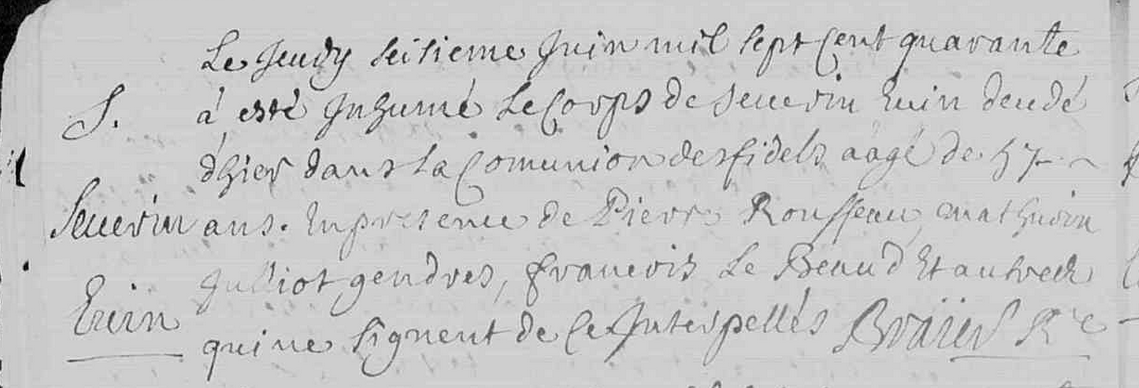 Le Jeudy seisieme Juin mil sept Cent quarante
S. á esté Inhumé Le Corps de Seuerin Euin decedé
d'hier dans La Comunion des fidels aagé de 57
Seuerin ans. En presence de Pierre Rousseau, Mathurin
Julliot gendres, francois Le Beaud Et autres
Euin qui ne signent de Ce Interpellés Braier Rc